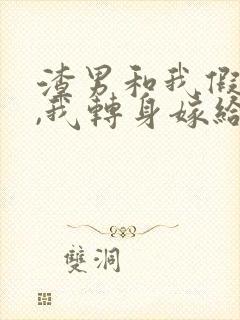 渣男和我假
,我轉身嫁給
雙洞